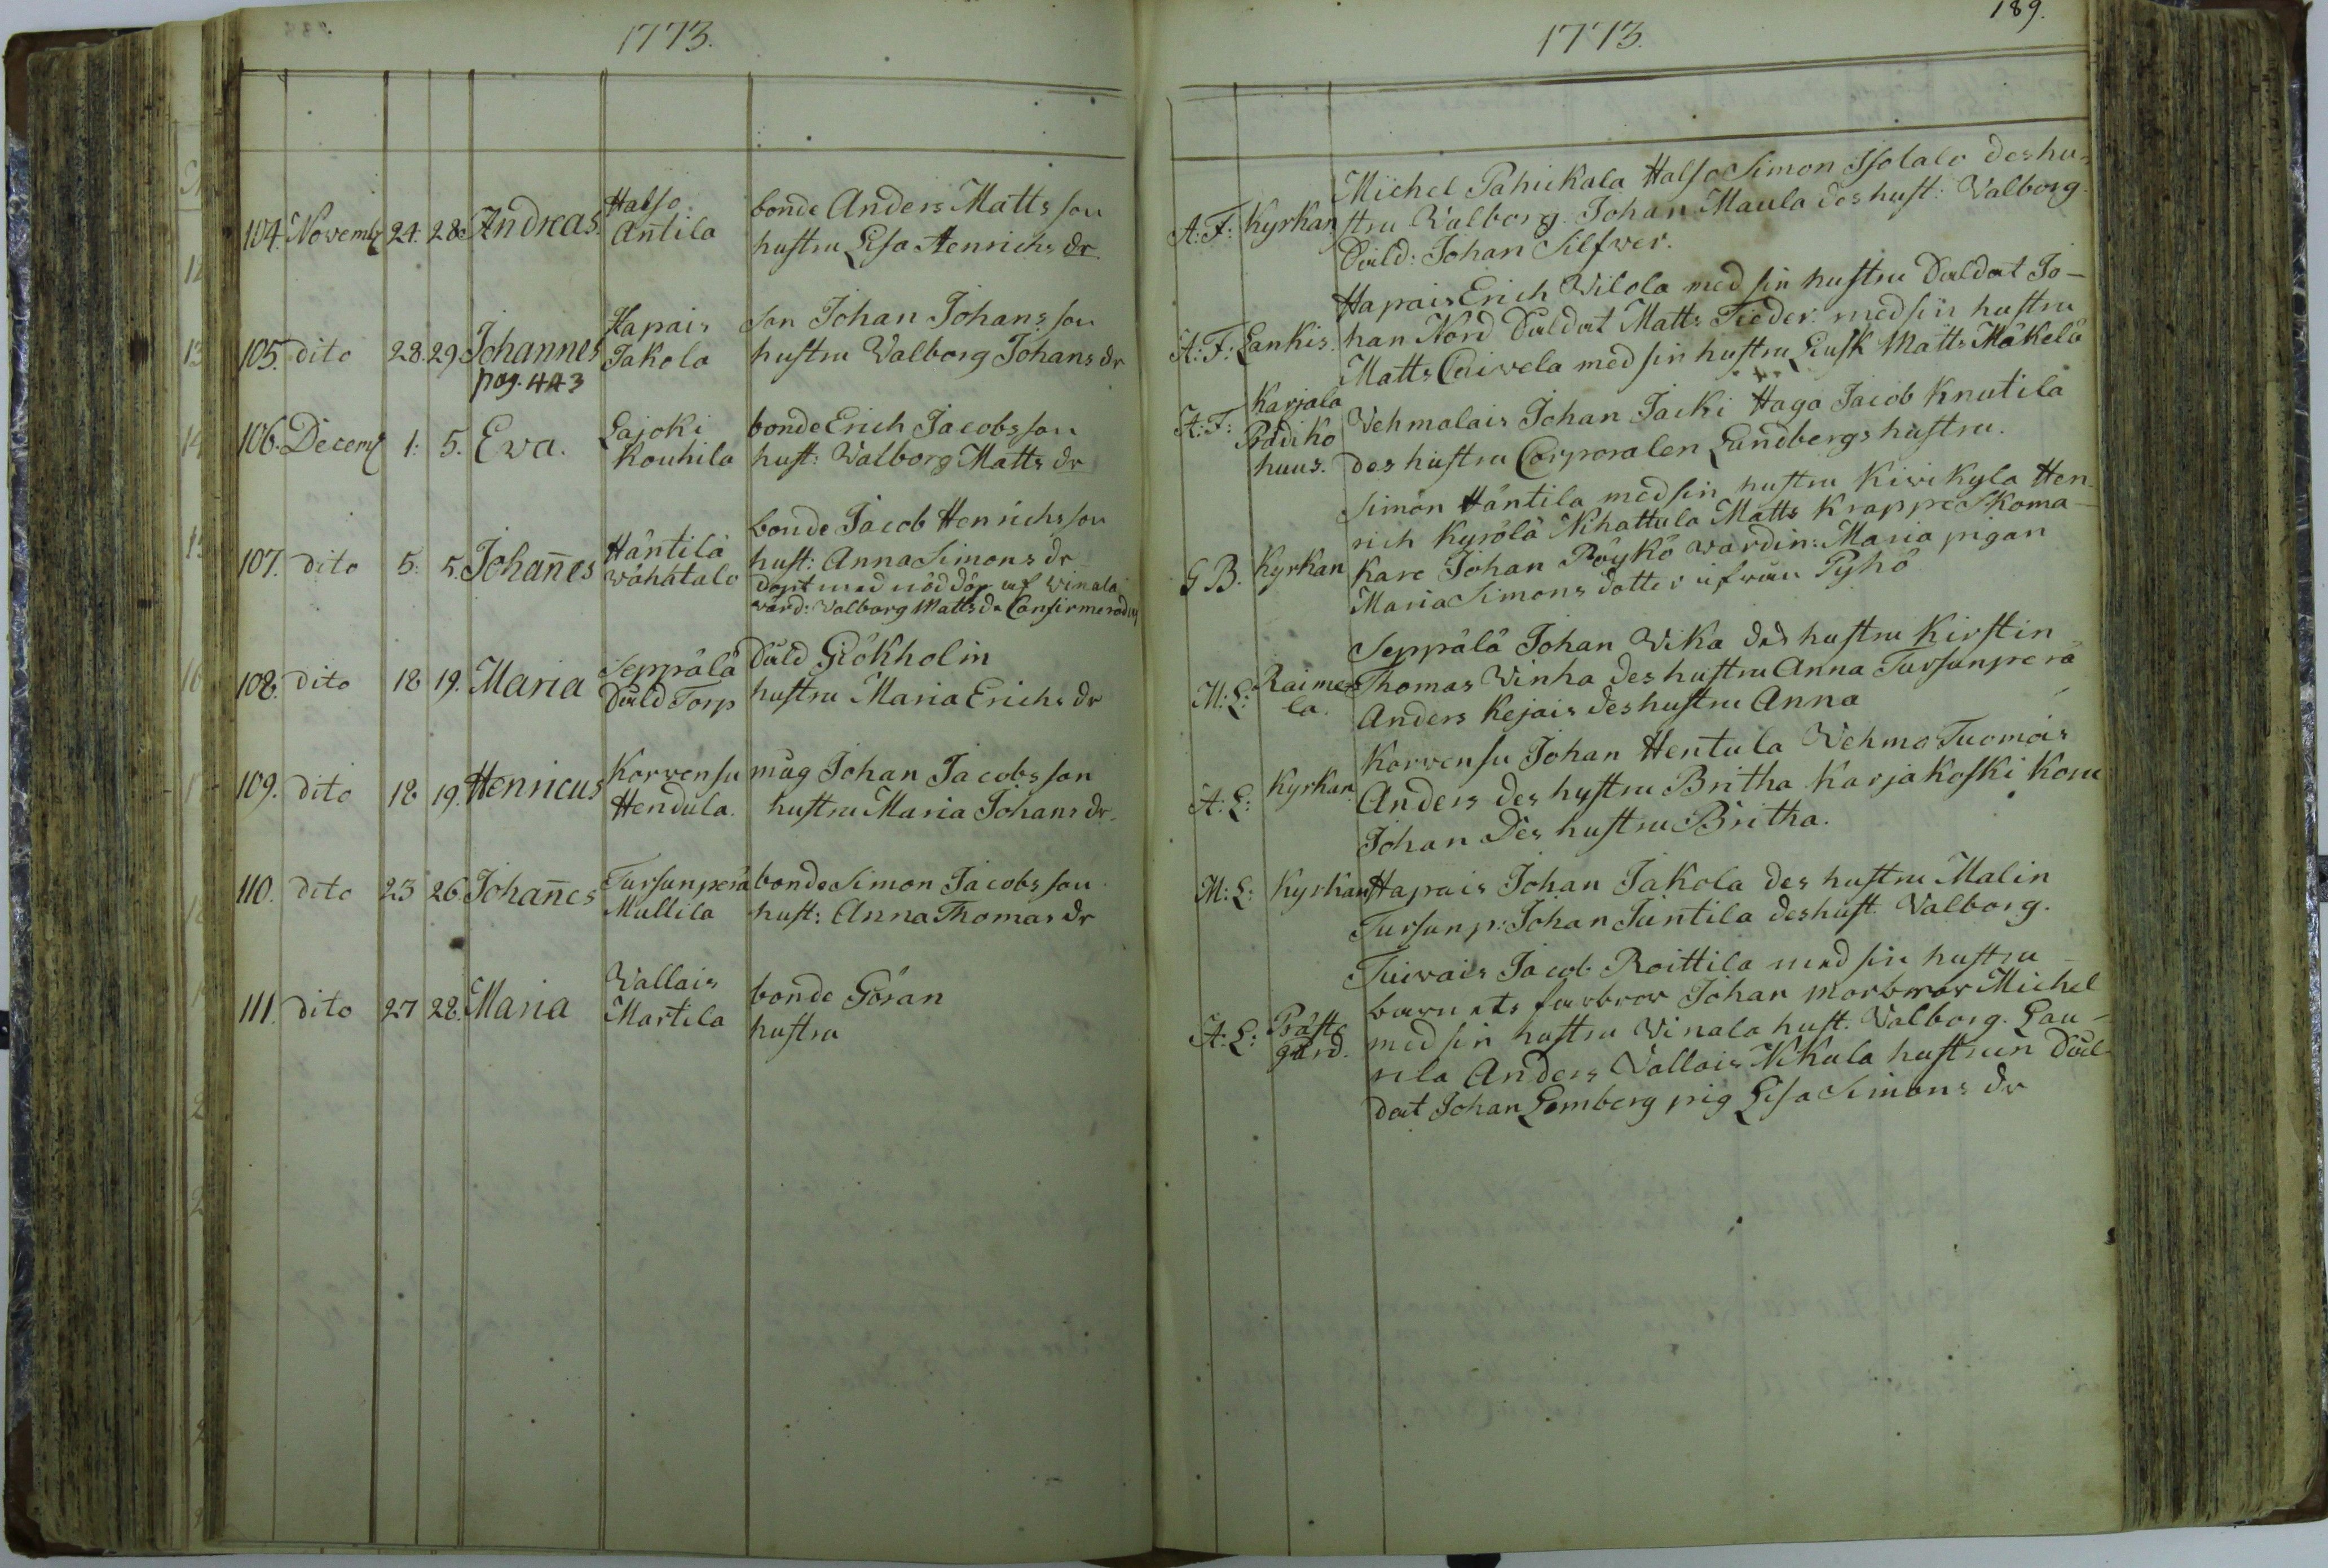 1773.
104. Novemb 24. 28. Andreas. Halso Antila bonde Anders Matts son
hustru Lisa Henrichs dr
105. dito 28. 29. Johannes Hapais Jakola Son Johan Johans son
pag. 443 hustru Valborg Johans dr
106. Decemb 1. 5. Eva. Lajoki Kouhila bonde Erich Jacobs son
hust: Valborg Matts dr
107. dito 5. 5. Johan̄es Häntilä Wähätalo bonde Jacob Henrichs son
hust: Anna Simons dr
döpt med nöd döp af Vinala
värd: Valborg Matts dr Confirmerad
108. dito 18 19. Maria Seppälä Dald Torp Dald Glökholm
hustru Maria Erichs dr
109. dito 18 19. Henricus Korvensu Hendula. måg Johan Jacobs son
hustru Maria Johans dr.
110. dito 23 26. Johan̄es Tursunperä Mullila bonde Simon Jacobs son
hust: Anna Thomas dr
111. dito 27 28. Maria Vallais Martila bonde Göran
hustru
1773. 189.
Michel Pahikala Halso Simon Isolalo des hu-
A: F: Kyrkan stru Valborg. Johan Maula des hust: Valborg.
Dald: Johan Silfwer.
Hapais Erich Vilola med sin hustru Daldat Jo-
A: F: Lankis. han Nord Daldat Matts Fieder. med sin hustru
Matts Caivela med sin hustru Matts Mäkelä
A: F: Karjala Prädiko huus. Vehmalais Johan Jacki Haga Jacob Knutila
des hustru Corporalen Lundbergs hustru.
Simon Häntila med sin hustru Kivikyla Hen-
rich Kyrölä Nihattula Matts Krappe Skoma-
G B. Kyrkan kare Johan Pöykö wärdin: Maria pigan
Maria Simons dotter ifrån Pyhö
Seppälä Johan Vika des hustru Kirstin
M: L: Raimela. Thomas Vinha des hustru Anna Tursunperä
Anders Kejais des hustru Anna
Korvensu Johan Hentula Vehmo Tuomois
A: L: Kyrkan. Anders des hustru Britha Karjakoski Konu
Johan Des hustru Britha.
M: L: Kyrkan Hapais Johan Jakola des hustru Malin
Tursunp: Johan Juntila des hust. Valborg.
Tuivais Jacob Roittila med sin hustru
barnets farbror Johan morbror Michel
A: L: Prästgård. med sin hustru Vinala hust. Valborg. Lau-
rila Anders Vallais Nikula hustrun Dal-
dat Johan Lemberg pig Lisa Simons dr